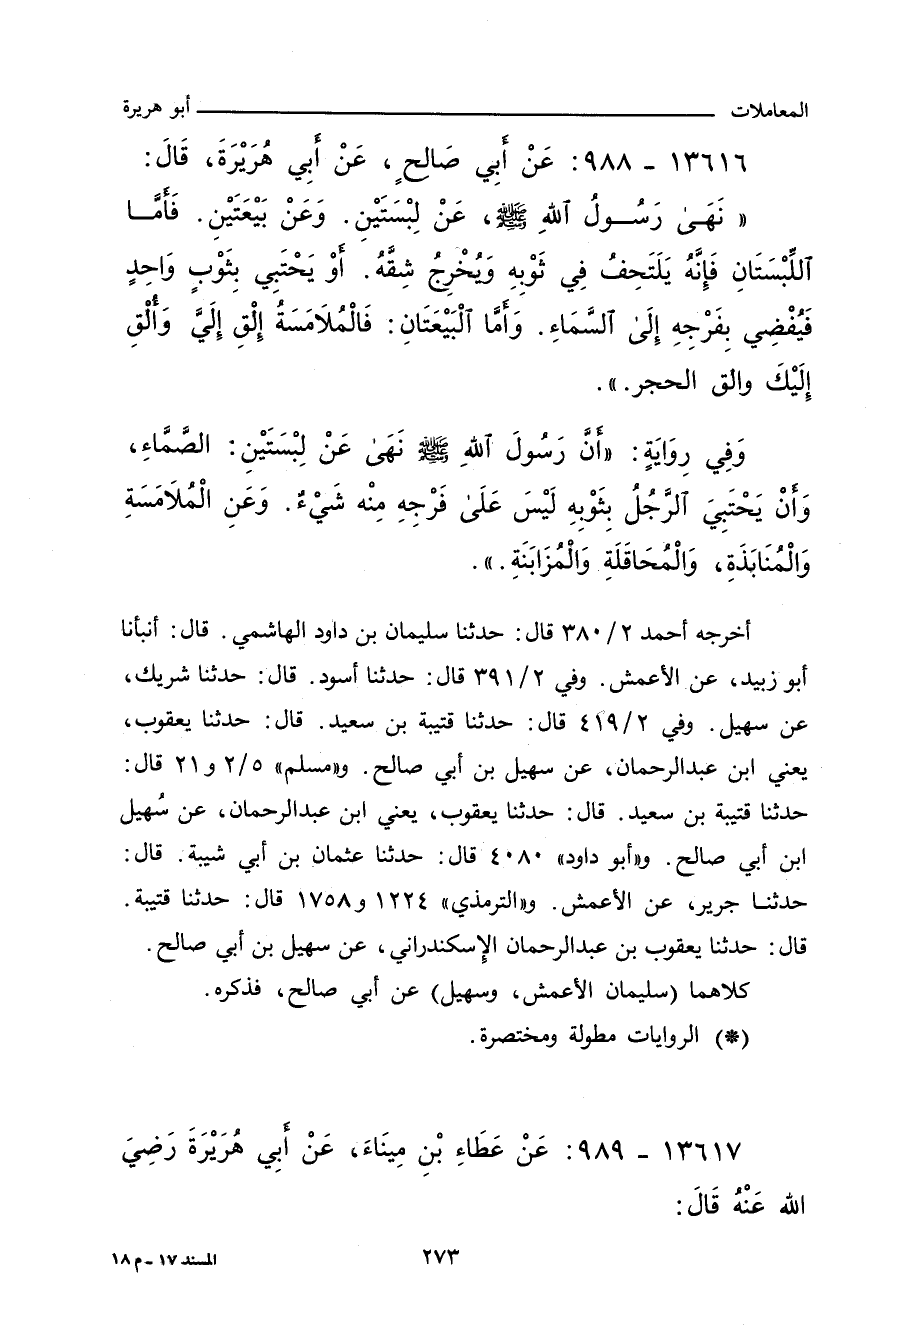 المعاملات ــــــ أبو هريرة
١٣٦١٦ - ٩٨٨: عَنْ أَبِي صَالحٍ، عَنْ أَبِي هُرَيْرَةَ، قَالَ:
« نَهَىٰ رَسُولُ ٱللهِ ﷺ، عَنْ لِبْسَتَيْنِ. وَعَنْ بَيْعَتَيْنِ. فَأَمَّا
ٱللِّبْسَتَانِ فَإِنَّهُ يَلْتَحِفُ فِي ثَوْبِهِ وَيُخْرِجُ شِقَّهُ. أَوْ يَحْتَبِي بِثَوْبٍ وَاحِدٍ
فَيُفْضِي بِفَرْجِهِ إِلَىٰ ٱلسَّمَاءِ. وَأَمَّا ٱلْبَيْعَتَانِ: فَالْمُلَامَسَةُ إِلْقِ إِلَيَّ وَأُلْقِ
إِلَيْكَ والق الحجر.».
وَفِي رِوَايَةٍ: «أَنَّ رَسُولَ ٱللهِ ﷺ نَهَىٰ عَنْ لِبْسَتَيْنِ: الصَّمَّاءِ،
وَأَنْ يَحْتَبِيَ ٱلرَّجُلُ بِثَوْبِهِ لَيْسَ عَلَىٰ فَرْجِهِ مِنْه شَيْءٌ. وَعَنِ الْمُلَامَسَةِ
وَالْمُنَابَذَةِ، وَالْمُحَاقَلَةِ وَالْمُزَابَنَةِ.».
أخرجه أحمد ٣٨٠/٢ قال: حدثنا سليمان بن داود الهاشمي. قال: أنبأنا
أبو زبيد، عن الأعمش. وفي ٣٩١/٢ قال: حدثنا أسود. قال: حدثنا شريك،
عن سهيل. وفي ٤١٩/٢ قال: حدثنا قتيبة بن سعيد. قال: حدثنا يعقوب،
يعني ابن عبدالرحمان، عن سهيل بن أبي صالح. و«مسلم» ٢/٥ و٢١ قال:
حدثنا قتيبة بن سعيد. قال: حدثنا يعقوب، يعني ابن عبدالرحمان، عن سُهيل
ابن أبي صالح. و«أبو داود» ٤٠٨٠ قال: حدثنا عثمان بن أبي شيبة. قال:
حدثنا جرير، عن الأعمش. و«الترمذي» ١٢٢٤ و١٧٥٨ قال: حدثنا قتيبة.
قال: حدثنا يعقوب بن عبدالرحمان الإسكندراني، عن سهيل بن أبي صالح.
كلاهما (سليمان الأعمش، وسهيل) عن أبي صالح، فذكره.
(*) الروايات مطولة ومختصرة.
١٣٦١٧ - ٩٨٩: عَنْ عَطَاءِ بْنِ مِينَاءَ، عَنْ أَبِي هُرَيْرَةَ رَضِيَ
الله عَنْهُ قَالَ:
٢٧٣
المسند ١٧ - م ١٨